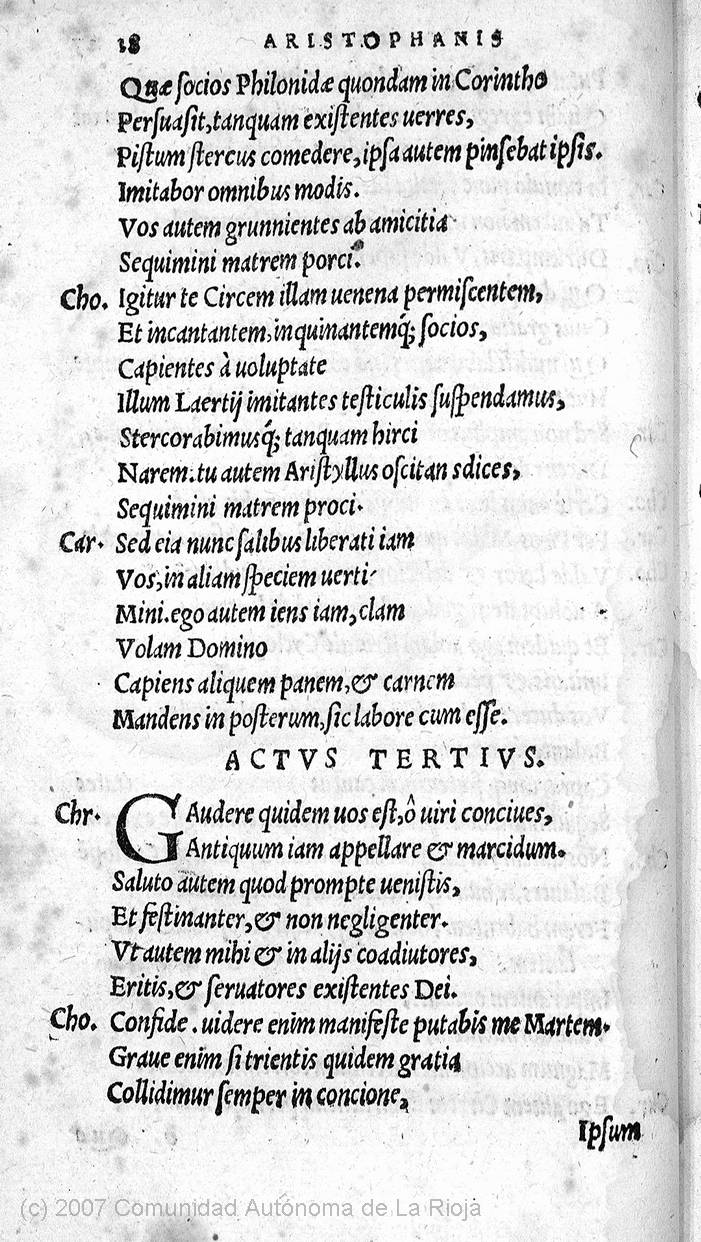 18 ARISTOPHANIS
Quæ ſocios Philonidæ quondam in Corintho
Perſuaſit, tanquam exiſtentes uerres,
Piſtum ſtercus comedere, ipſa autem pinſebat ipſis.
Imitabor omnibus modis.
Vos autem grunnientes ab amicitia
Sequimini matrem porci.
Cho. Igitur te Circem illam uenena permiſcentem,
Et incantantem, inquinantemq́; ſocios,
Capientes à uoluptate
Illum Laertij imitantes teſticulis ſuſpendamus,
Stercorabimusq́; tanquam hirci
Narem. tu autem Ariſtyllus oſcitans dices,
Sequimini matrem proci.
Car. Sed eia nunc ſalibus liberati iam
Vos, in aliam ſpeciem uerti-
Mini. ego autem iens iam, clam
Volam Domino
Capiens aliquem panem, & carnem
Mandens in poſterum, ſic labore cum eſſe.
ACTVS TERTIVS.
Chr. GAudere quidem uos eſt, ô uiri conciues,
Antiquum iam appellare & marcidum.
Saluto autem quod prompte ueniſtis,
Et feſtinanter, & non negligenter.
Vt autem mihi & in alijs coadiutores,
Eritis, & ſeruatores exiſtentes Dei.
Cho. Confide. uidere enim manifeſte putabis me Martem.
Graue enim ſi trientis quidem gratia
Collidimur ſemper in concione,
Ipſum
(c) 2007 Comunidad Autónoma de La Rioja